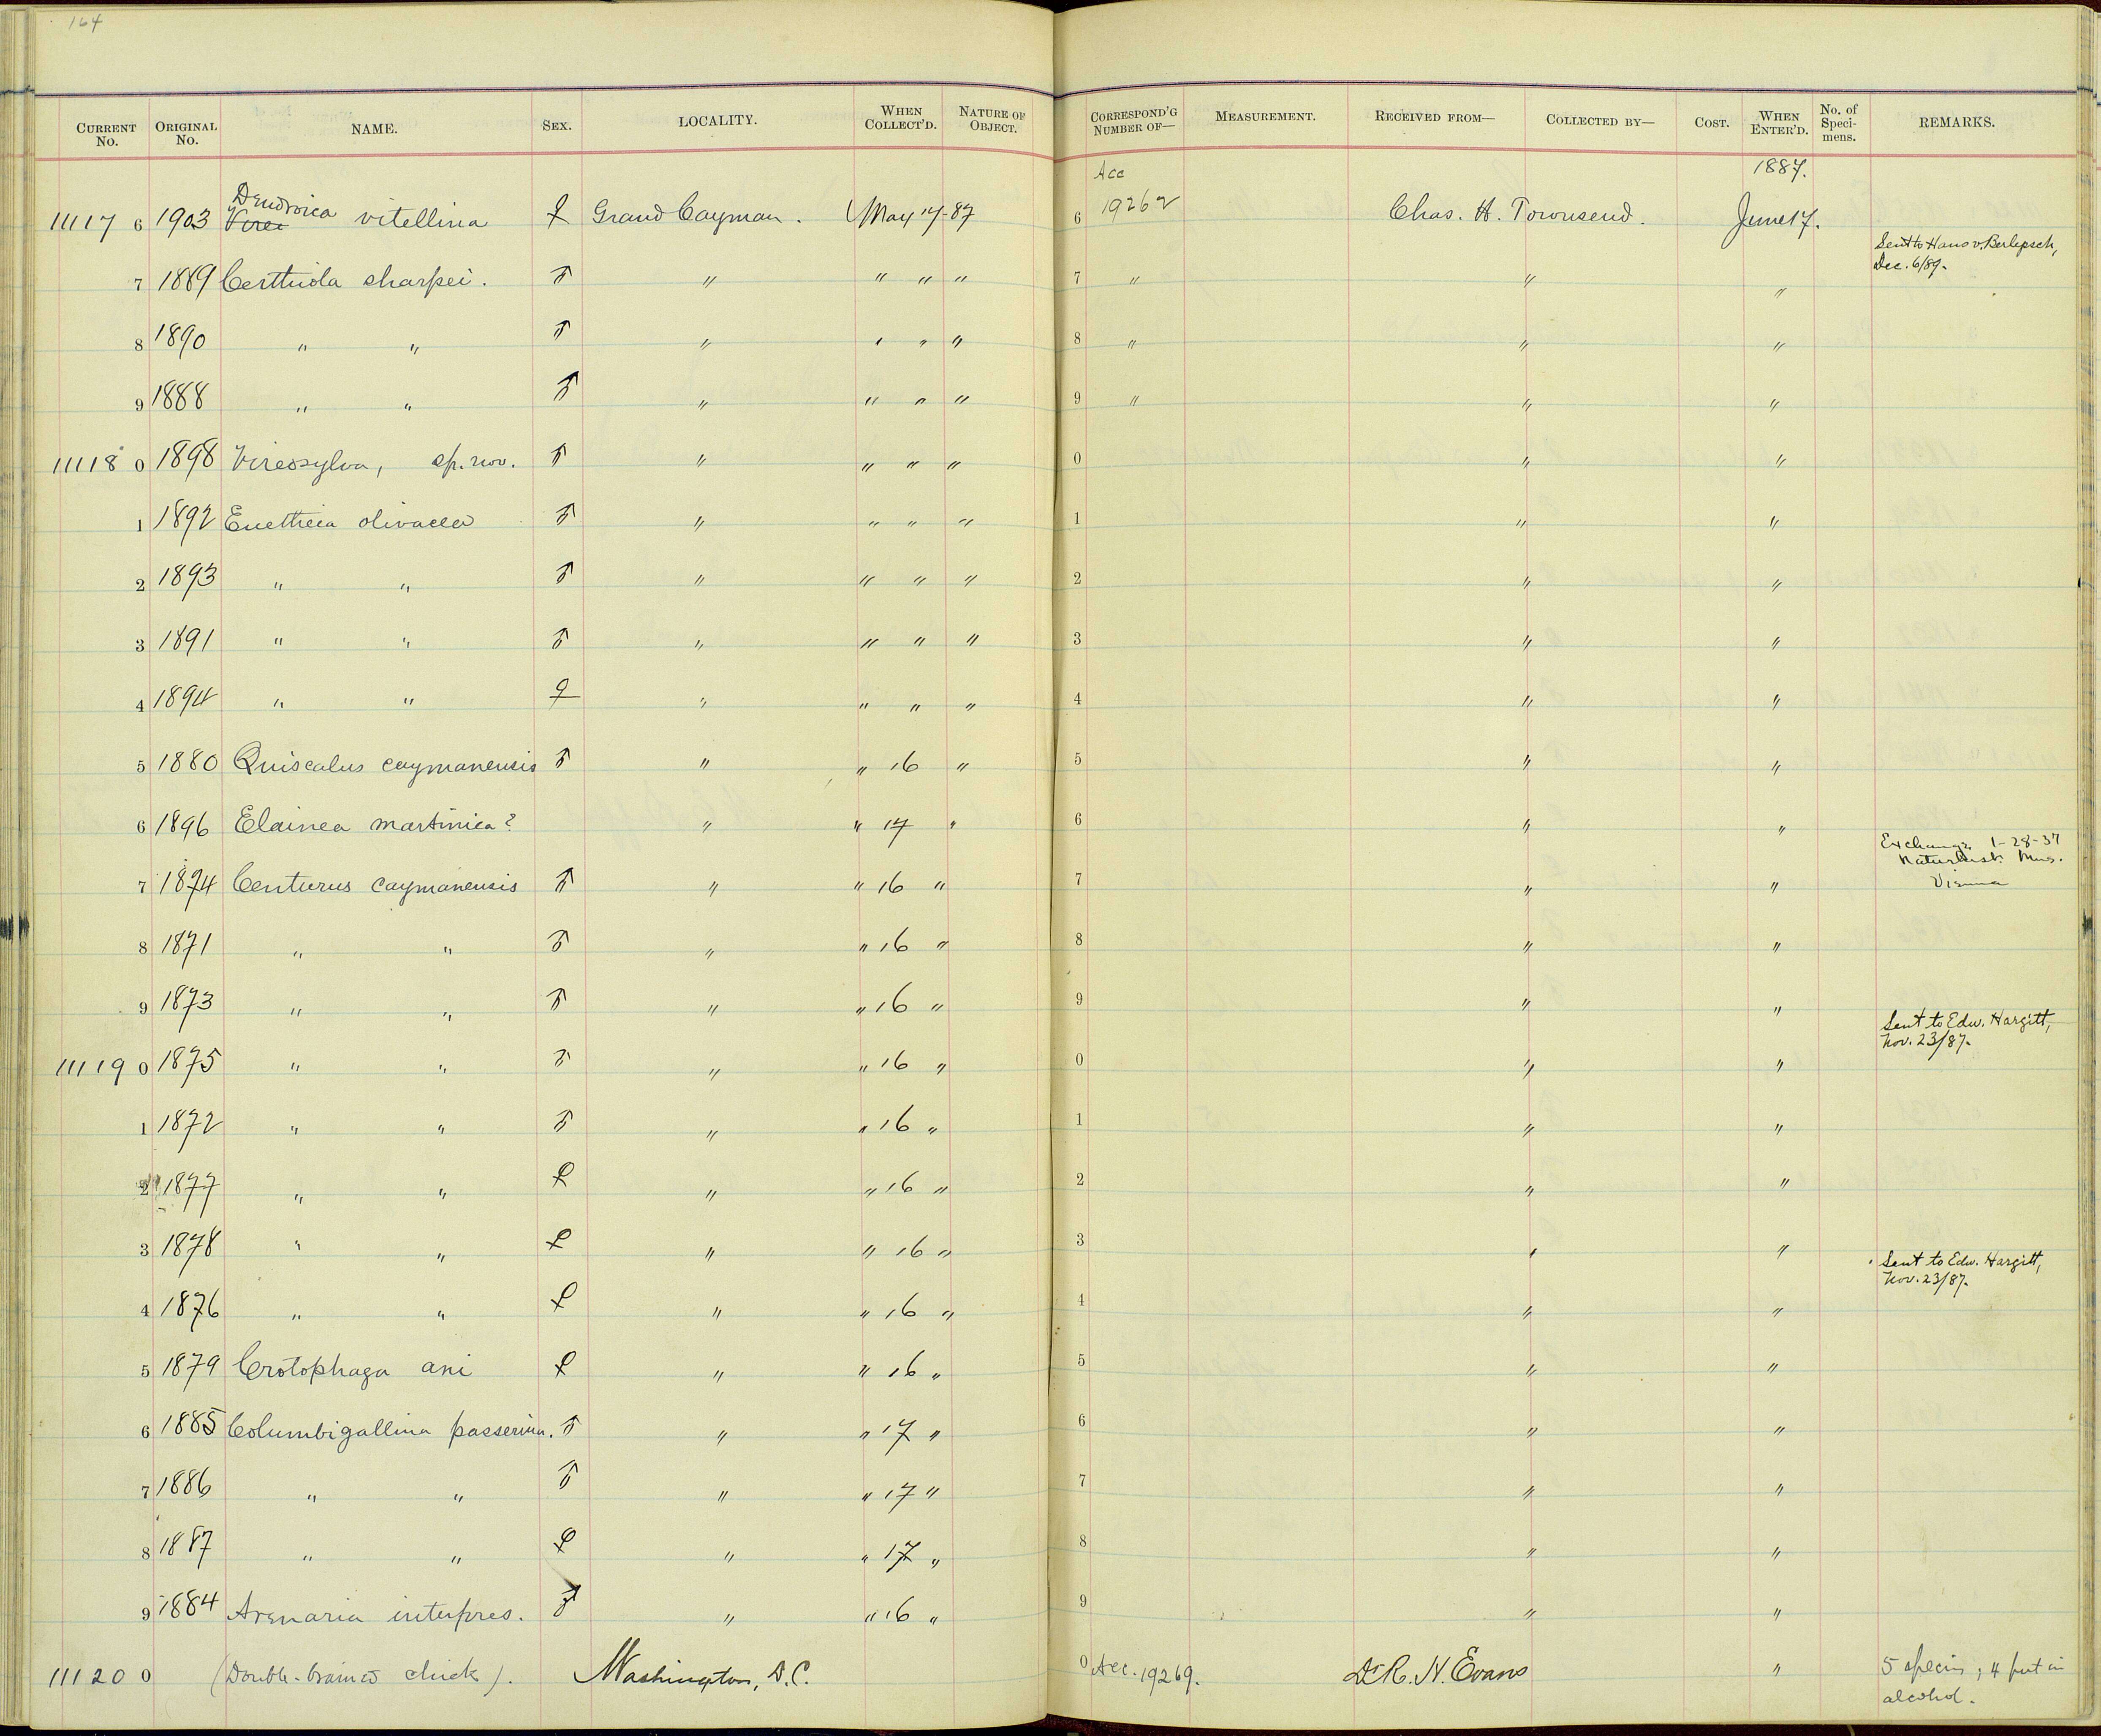 164
CURRENT No. ORIGINAL No. NAME. SEX. LOCALITY. WHEN COLLECT'D. NATURE OF OBJECT. CORRESPOND'G NUMBER OF— MEASUREMENT. RECEIVED FROM— COLLECTED BY— COST. WHEN ENTER'D. No. of Speci-mens. REMARKS.
Acc 1887.
11117 6 1903 Virei Dendroica vitellina ♀ Grand Cayman. May 17-87 6 19262 Chas. H. Townsend. June 17.
Sent to Hans v. Berlepsch,
Dec. 6/89.
7 1889 Certhiola sharpei. ♂ " " " " 7 " " "
8 1890 " " ♂ " " " " 8 " " "
9 1888 " " ♂ " " " " 9 " " "
11118 0 1898 Vireosylva, sp. nov. ♂ " " " " 0 " "
1 1892 Euetheia olivacea ♂ " " " " 1 " "
2 1893 " " ♂ " " " " 2 " "
3 1891 " " ♂ " " " " 3 " "
4 1894 " " ♀ " " " " 4 " "
5 1880 Quiscalus caymanensis ♂ " " 16 " 5 " "
6 1896 Elainea martinica? " " 17 " 6 " "
Exchange 1-28-37
Naturhist. Mus.
Vienna
7 1874 Centurus caymanensis ♂ " " 16 " 7 " "
8 1871 " " ♂ " " 16 " 8 " "
9 1873 " " ♂ " " 16 " 9 " "
Sent to Edw. Hargitt,
Nov. 23/87.
11119 0 1875 " " ♂ " " 16 " 0 " "
1 1872 " " ♂ " " 16 " 1 " "
2 1877 " " ♀ " " 16 " 2 " "
3 1878 " " ♀ " " 16 " 3 " "
Sent to Edw. Hargitt,
Nov. 23/87.
4 1876 " " ♀ " " 16 " 4 " "
5 1879 Crotophaga ani ♀ " " 16 " 5 " "
6 1885 Columbigallina passerina. ♂ " " 17 " 6 " "
7 1886 " " ♂ " " 17 " 7 " "
8 1887 " " ♀ " " 17 " 8 " "
9 1884 Arenaria interpres. ♂ " " 16 " 9 " "
11120 0 (Double-brained chick). Washington, D.C. 0 Acc. 19269. Dr R. N. Evans " 5 specim; 4 put in
alcohol.